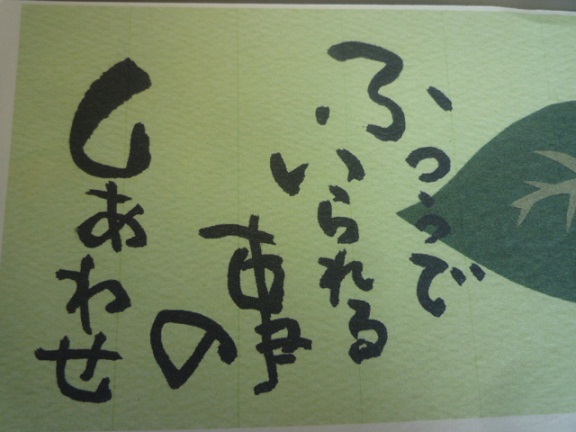 ふつうで
いられる
事の
しあわせ